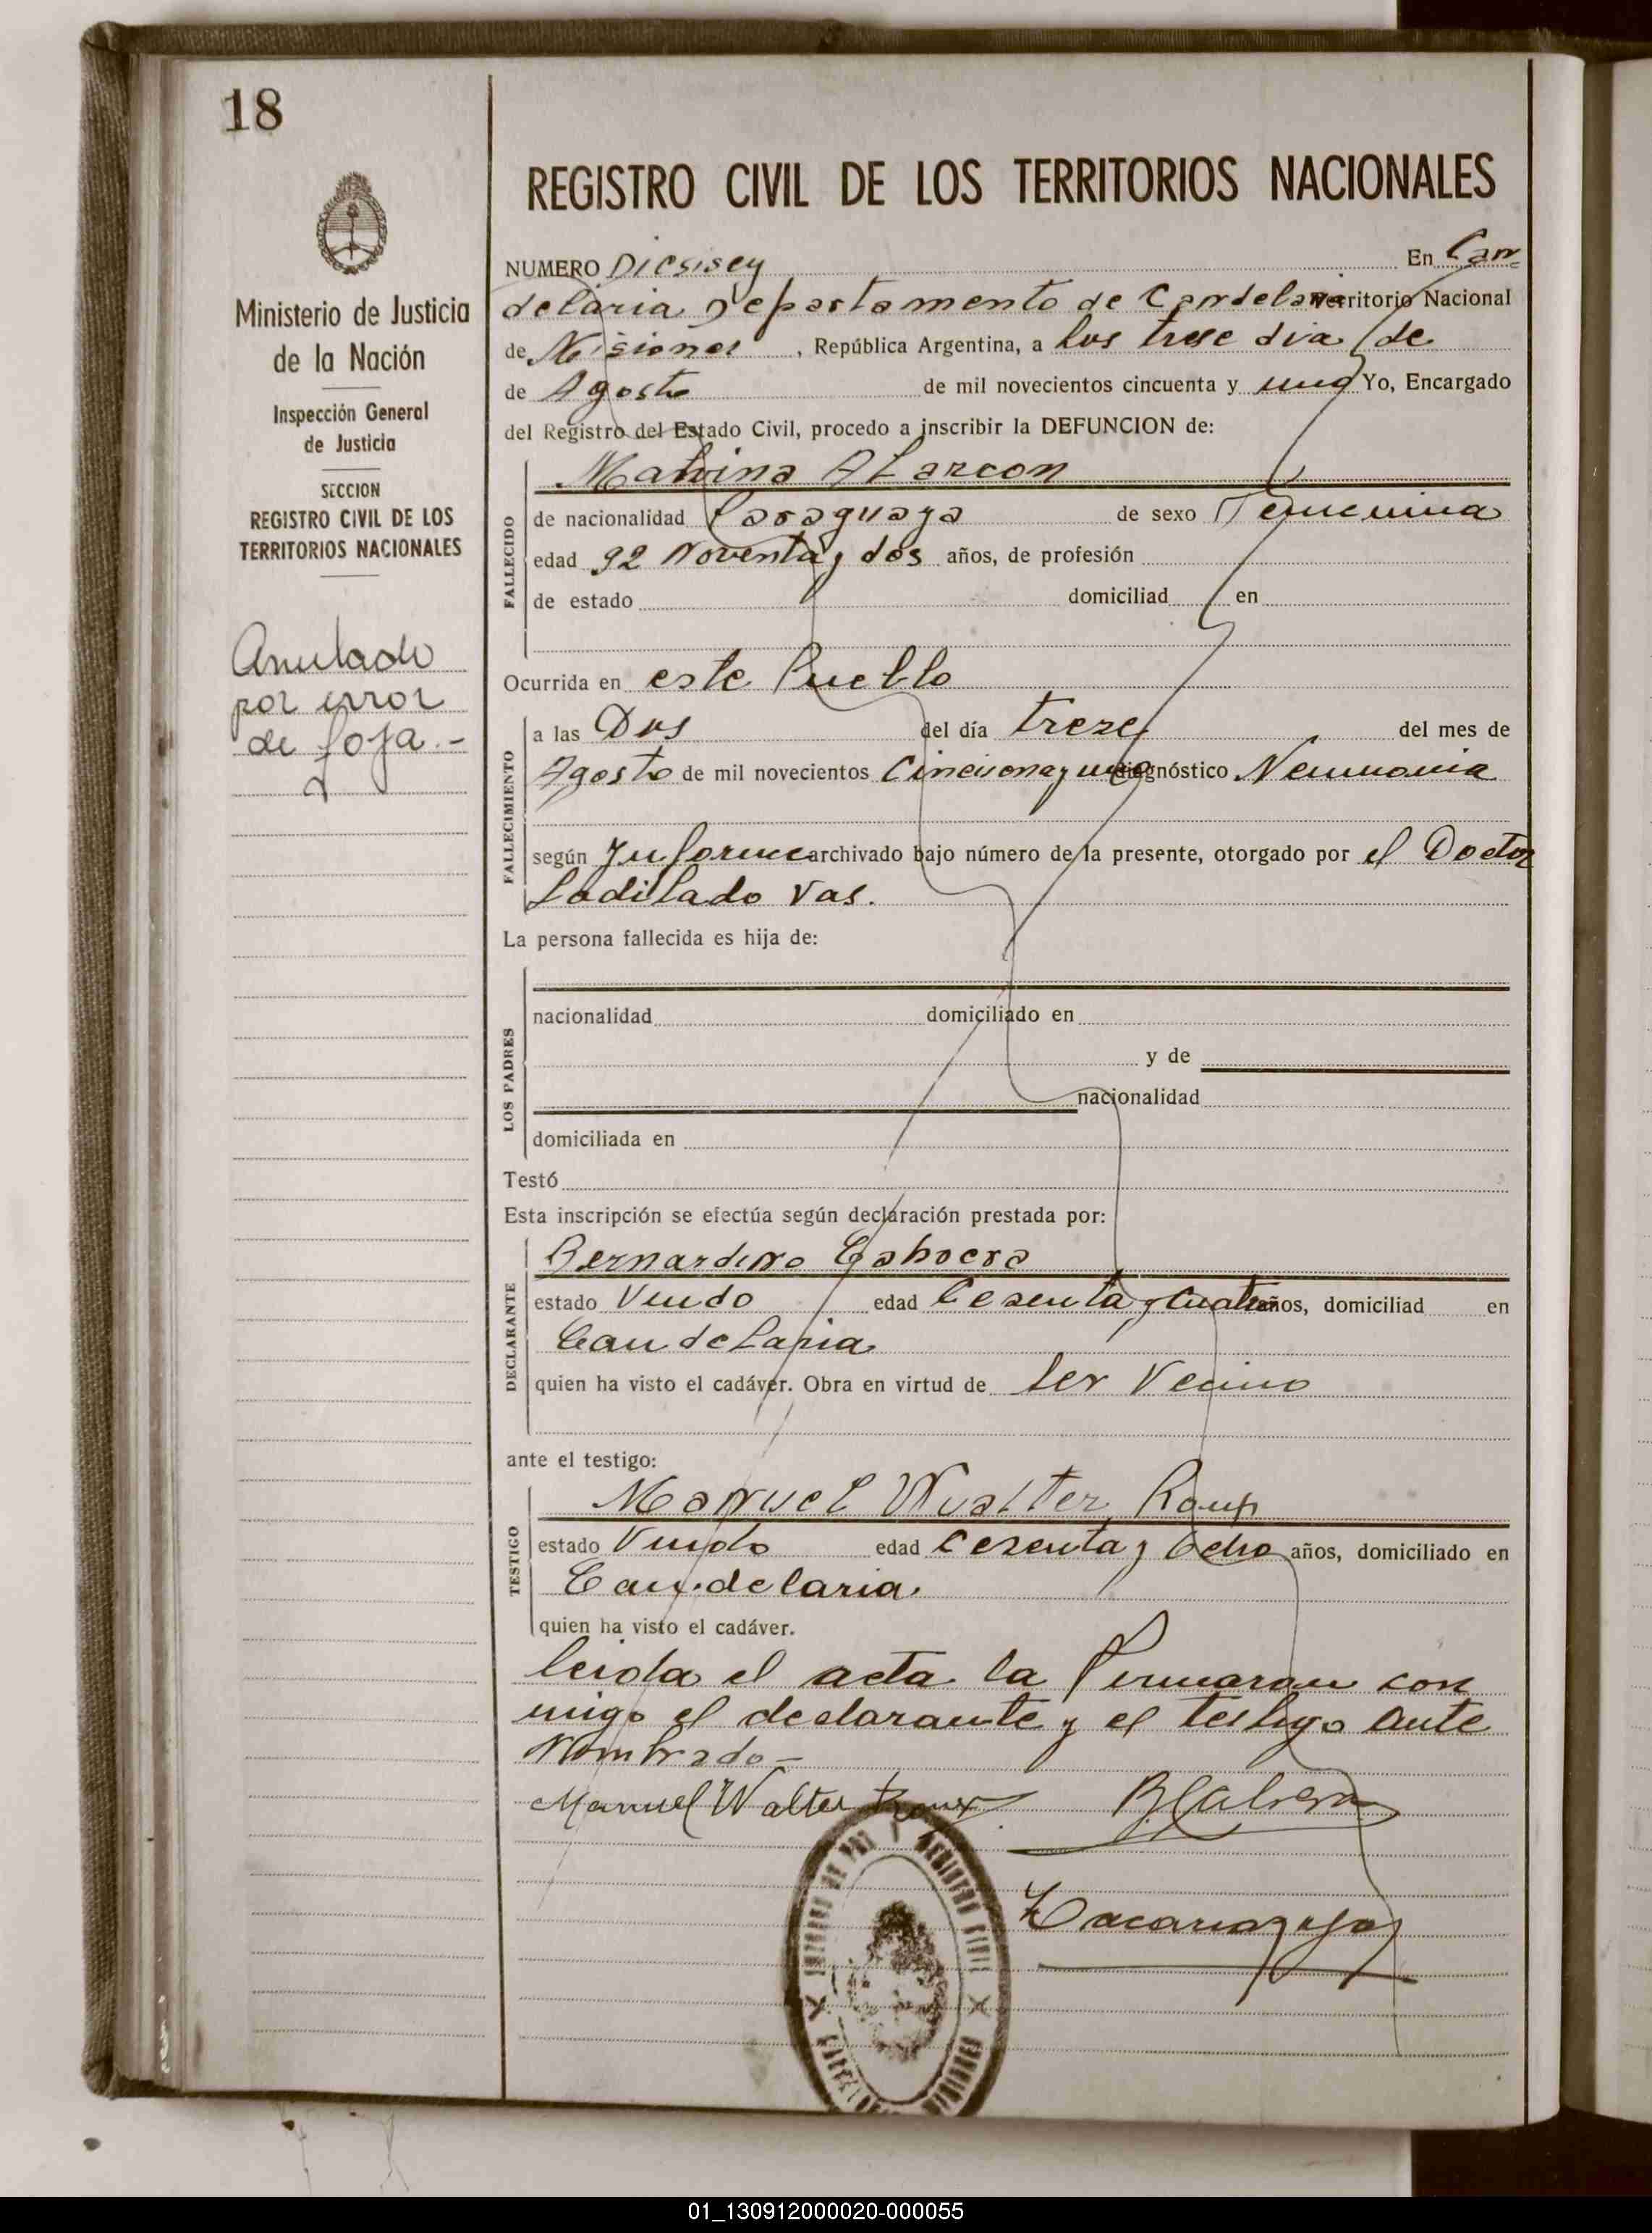 18
Ministerio de Justicia
de la Nación
Inspección General
de Justicia
SECCION
REGISTRO CIVIL DE LOS
TERRITORIOS NACIONALES
Anulado
por error
de foja.-
REGISTRO CIVIL DE LOS TERRITORIOS NACIONALES
NUMERO Diesisey En Can-
delaria Departamento de Candelaria Territorio Nacional
de Misiones, República Argentina, a los trese dia de
de Agosto de mil novecientos cincuenta y uno Yo, Encargado
del Registro del Estado Civil, procedo a inscribir la DEFUNCION de:
Malvina Alarcon
FALLECIDO
de nacionalidad Paraguaya de sexo Femenina
edad 92 Noventa y dos años, de profesión
de estado domiciliad en
Ocurrida en este Pueblo
FALLECIMIENTO
a las Dos del día treze del mes de
Agosto de mil novecientos Cincuenta y uno diagnóstico Neumonia
según Informe archivado bajo número de la presente, otorgado por el Doctor
Ladislado Vas.
La persona fallecida es hija de:
LOS PADRES
nacionalidad domiciliado en
y de
nacionalidad
domiciliada en
Testó
Esta inscripción se efectúa según declaración prestada por:
DECLARANTE
Bernardino Cabrera
estado Viudo edad Cesenta y Cuatro años, domiciliad en
Candelaria
quien ha visto el cadáver. Obra en virtud de ser Vecino
ante el testigo:
TESTIGO
Manuel Walter
estado Viudo edad Cesenta y Ocho años, domiciliado en
Candelaria.
quien ha visto el cadáver.
leida el acta la firmaron con
migo el declarante y el testigo ante
Nombrado-
Manuel Walter
B Cabrera
REGISTRO CIVIL
01_130912000020-000055